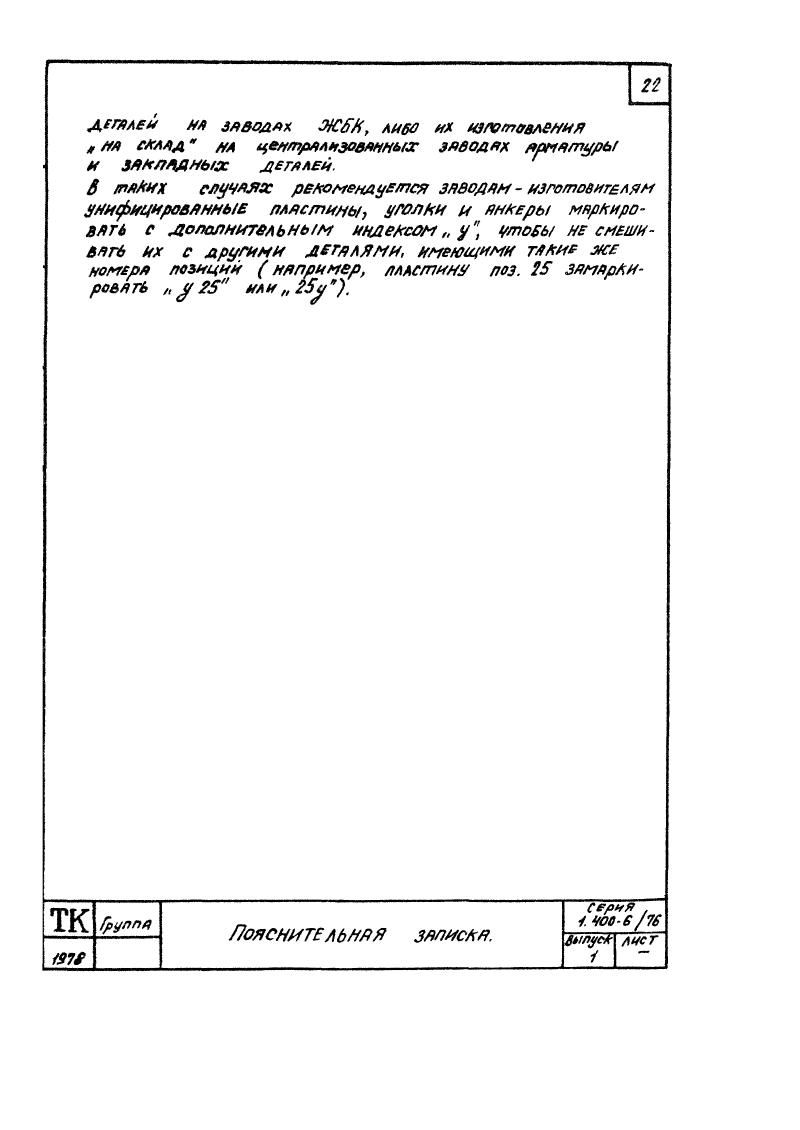 22
деталей на заводах ЖБК, либо их изготовления
„на склад" на централизованных заводах арматуры
и закладных деталей.
В таких случаях рекомендуется заводам-изготовителям
унифицированные пластины, уголки и анкеры маркиро-
вать с дополнительным индексом „у", чтобы не смеши-
вать их с другими деталями, имеющими такие же
номера позиций (например, пластину поз. 25 замарки-
ровать „у 25" или „25у").
ТК
Группа
1978
Пояснительная записка.
Серия
1.400-6/76
Выпуск
1
Лист
—